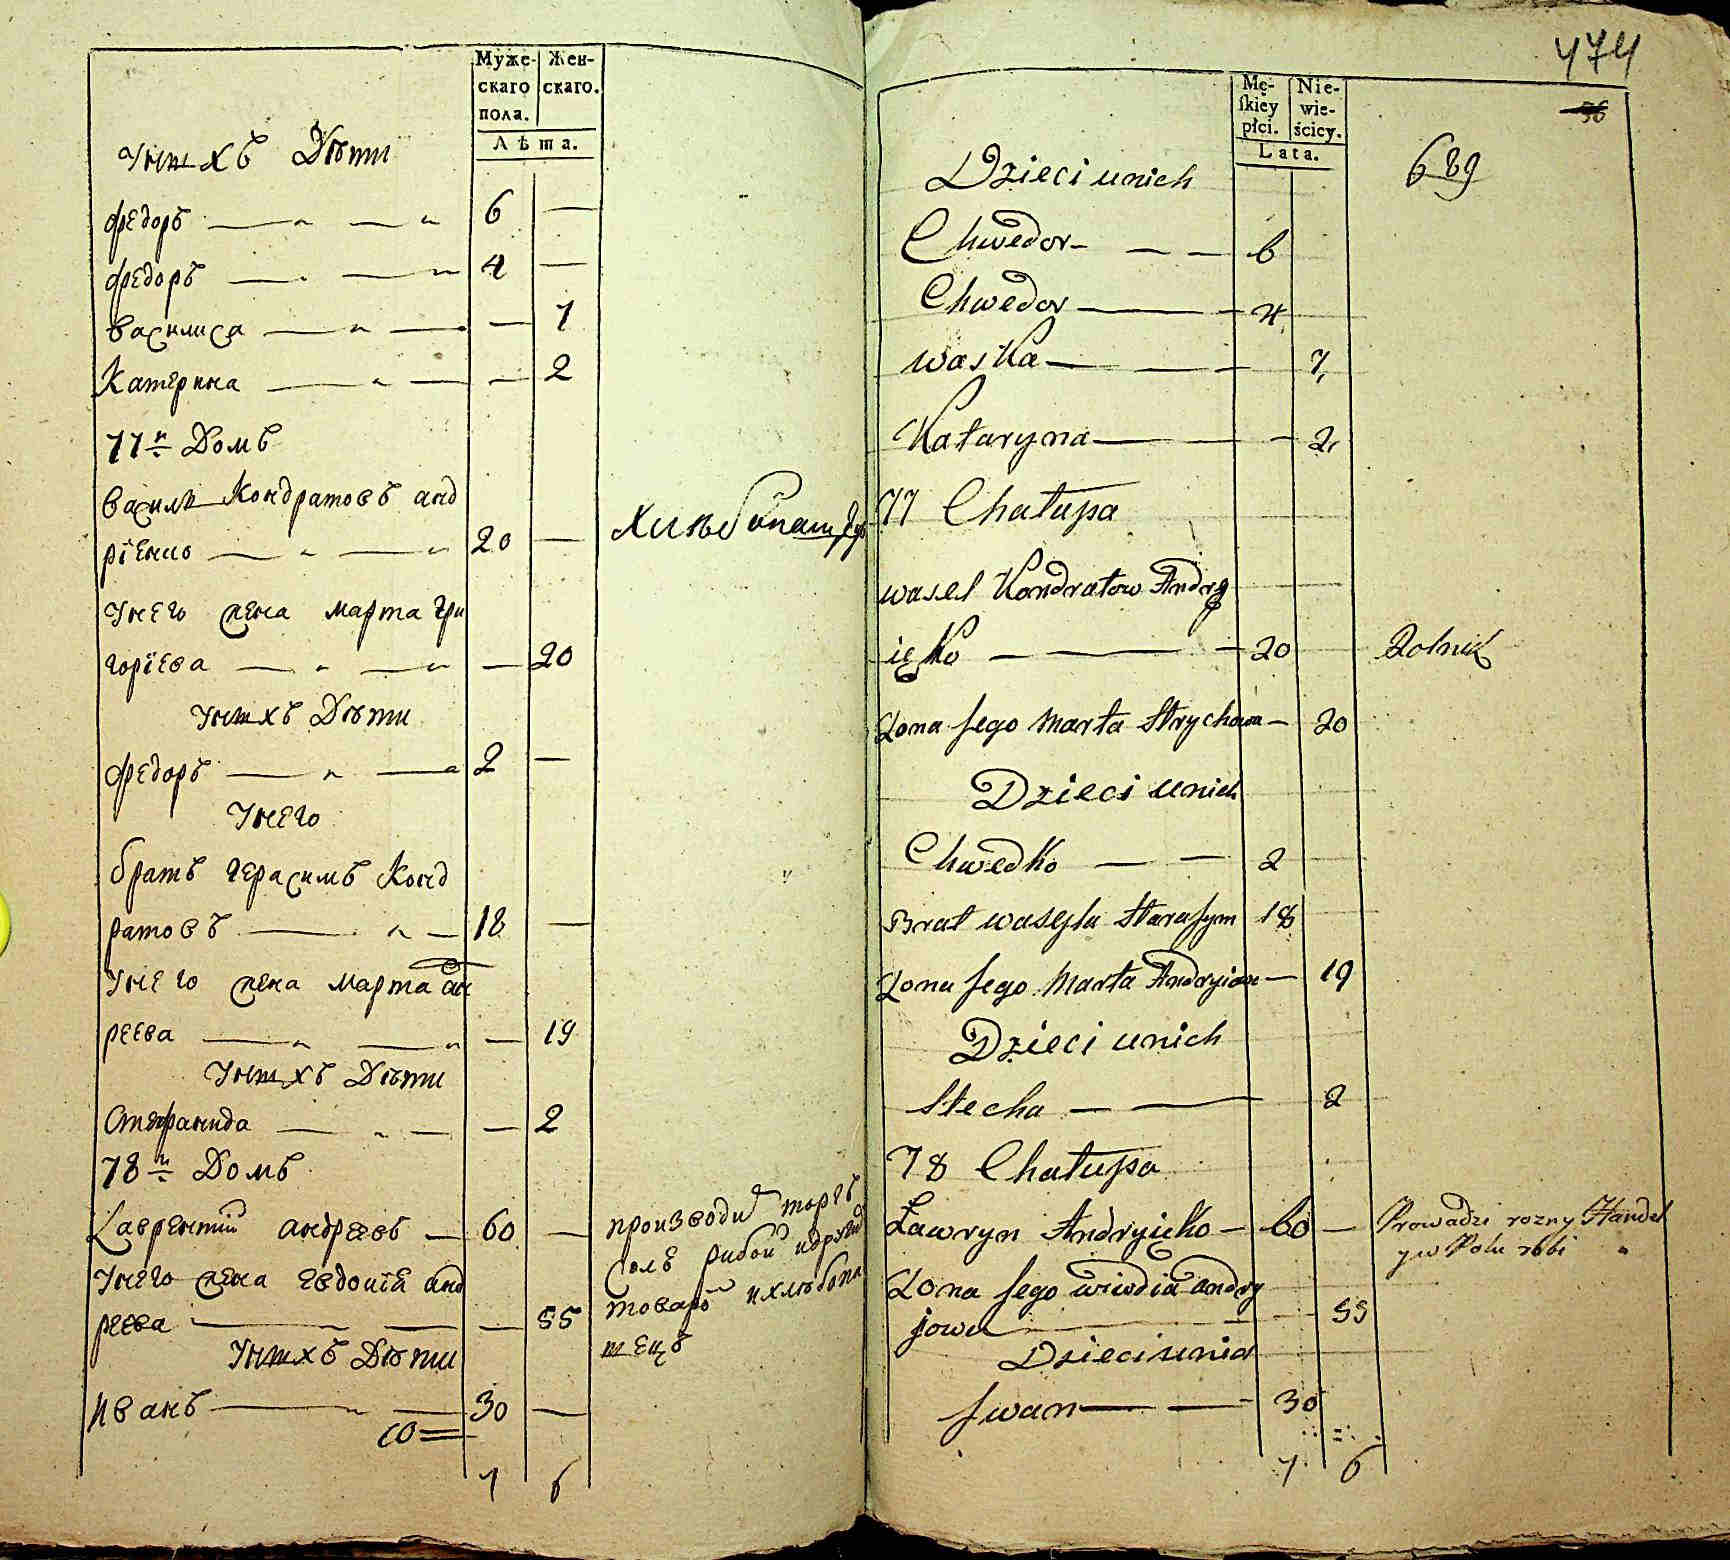 Муже-
скаго
пола.
Жен-
скаго.
Лѣта.
Унихъ Дѣти
Федоръ — " — " 6 —
Федоръ — " — " 4 —
Василиса — " — — 7
Катерина — " — — 2
77й Домъ
Василь Кондратовъ анд
рѣенко — " — " 20 —
хлѣбопашецъ
Унего жена марта гри
горѣева — " — " — 20
Унихъ Дѣти
Федоръ — " — " 2 —
Унего
братъ герасимъ Конд
ратовъ — " — 18 —
Унего жена марта ан
реева — " — " — 19
Унихъ Дѣти
Стефанида — " — — 2
78й Домъ
Лаврентий андреевъ — 60 —
Унего жена евдокія анд
реева — — — 55
производи торгъ
соль рибои идругий
товаръ ихлѣбопа
шецъ
Унихъ Дѣти
Иванъ — " — 30 —
7 6
474
56
689
Mę-
skiey
płci.
Nie-
wie-
ściey.
Lata.
Dzieci unich
Chwedor — — — 6
Chwedor — — 4
Waska — — — 7
Kataryna — — — 2
77 Chałupa
Wasel Kondratow Andry
ięko — — — 20 Rolnik
Zona Jego Marta Hrychowa — 20
Dzieci unich
Chwedko — — 2
Brat Wasyla Harasym 18
Zona Jego Marta Andryiow — 19
Dzieci unich
Stecha — — 2
78 Chałupa
Ławryn Andryicko — 60 — Prowadzi rozny Handel
y w Polu robi "
Zona Jego Wiwdia andry
jowa — — — 55
Dzieci unich
Jwan — — 30
7 6